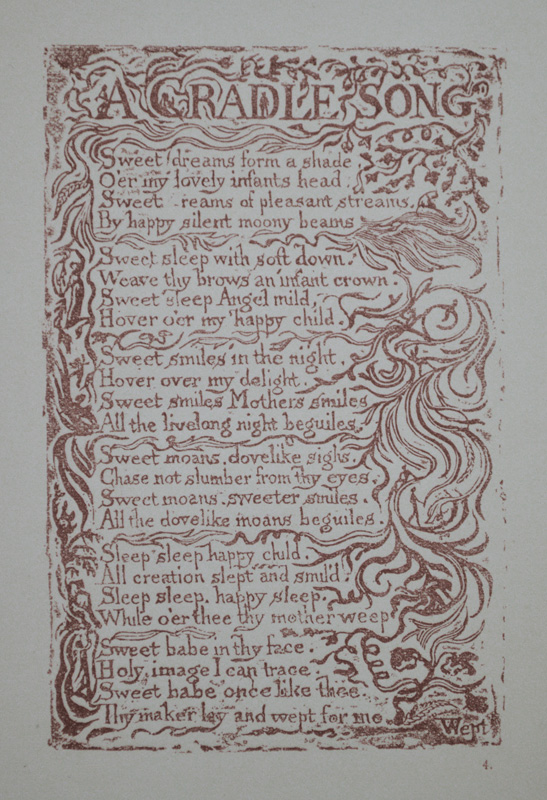 A CRADLE SONG
Sweet dreams form a shade
O'er my lovely infants head.
Sweet reams of pleasant streams.
By happy silent moony beams
Sweet sleep with soft down.
Weave thy brows an infant crown.
Sweet sleep Angel mild,
Hover o'er my happy child.
Sweet smiles in the night.
Hover over my delight.
Sweet smiles Mothers smiles
All the livelong night beguiles.
Sweet moans, dovelike sighs.
Chase not slumber from thy eyes.
Sweet moans. sweeter smiles.
All the dovelike moans beguiles.
Sleep sleep happy child.
All creation slept and smil'd.
Sleep sleep. happy sleep.
While o'er thee thy mother weep
Sweet babe in thy face.
Holy image I can trace.
Sweet babe once like thee.
Thy maker lay and wept for me
Wept
4.